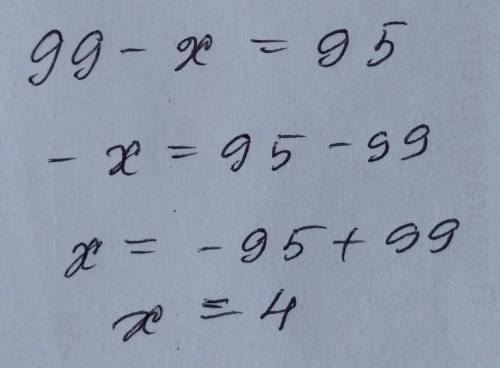 99 - x = 95
- x = 95 - 99
x = - 95 + 99
x = 4